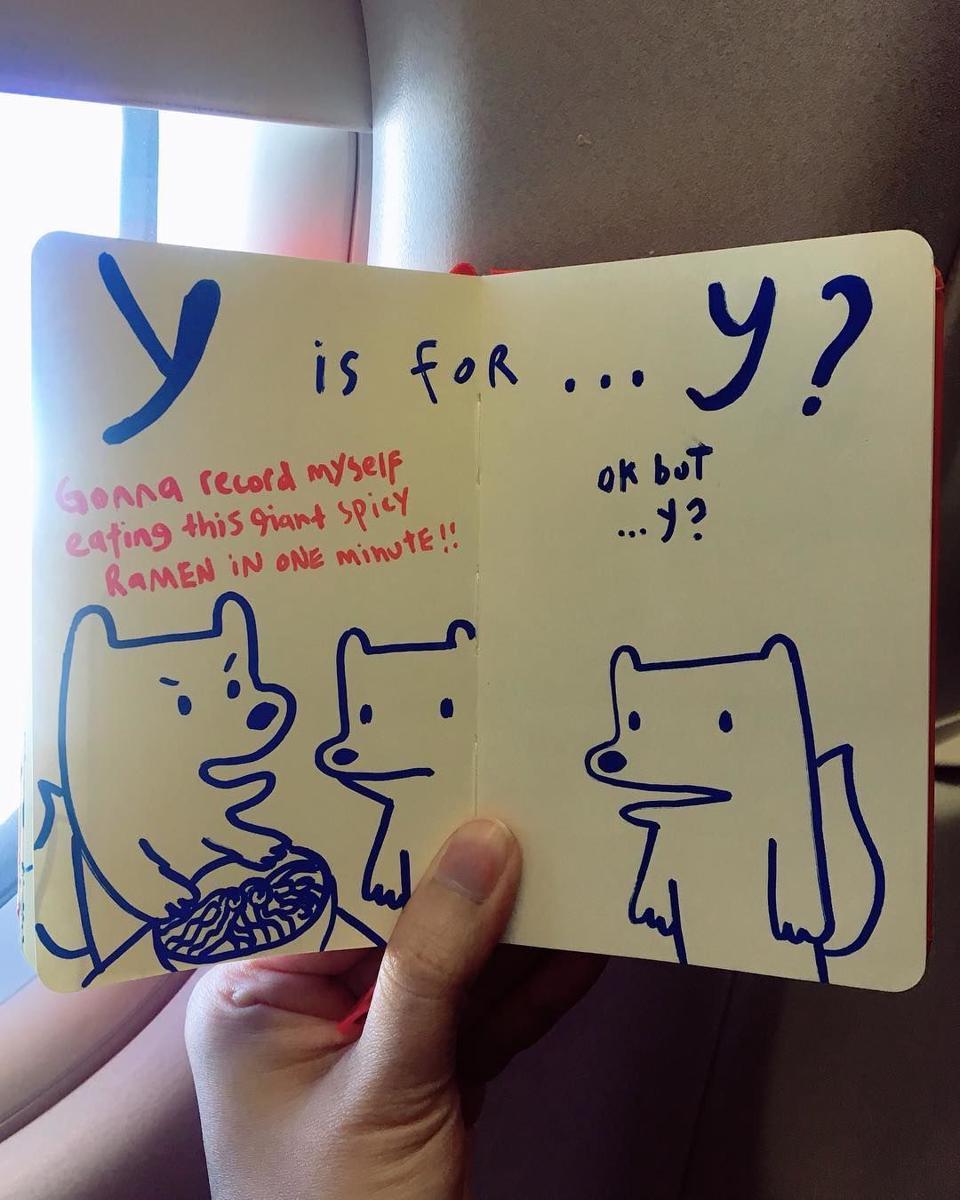 y is foR ... y?
Gonna record myself
eating this giant spicy
RaMEN iN ONE minuTE!!
OK buT
...y?